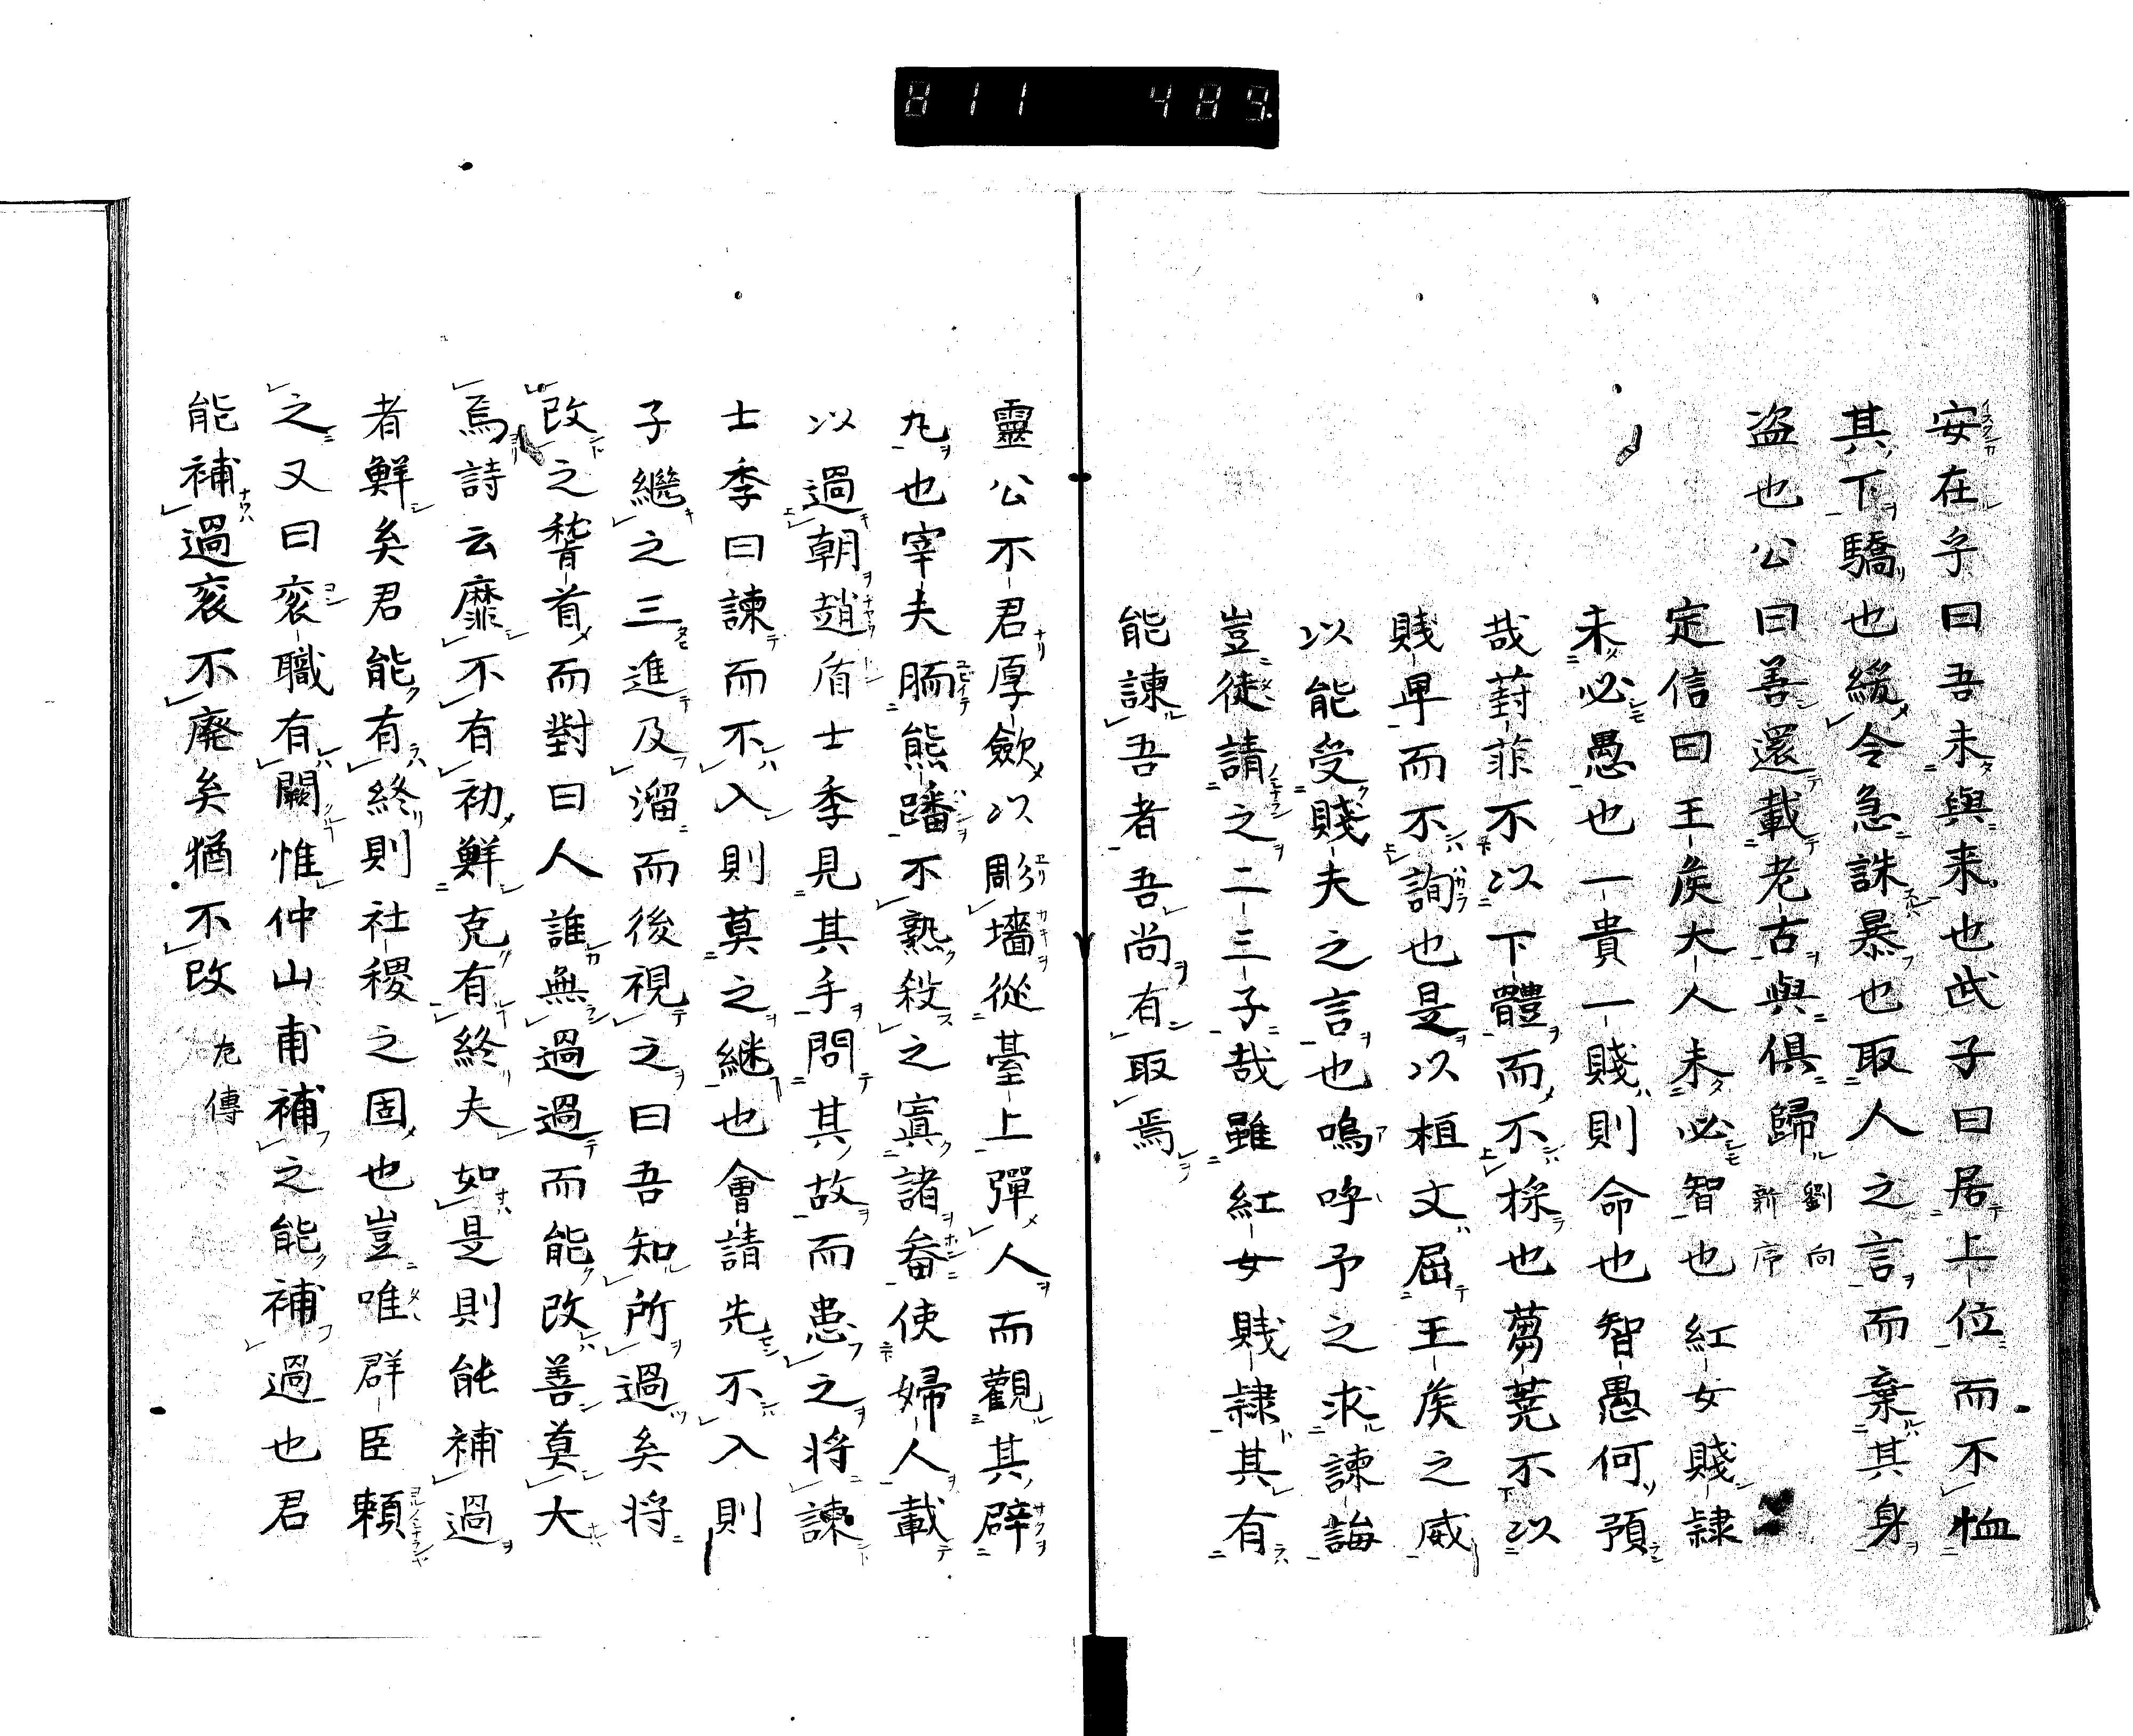 811 489.
安在乎曰吾未與来也武子曰居上位而不恤
其下驕也緩令急誅暴也取人之言而棄其身
盗也公曰善還載老古與俱歸 劉向新序
定信曰王矦大人未必智也紅女賤隷
未必愚也一貴一賤則命也智愚何預
哉葑菲不以下體而不採也蒭蕘不以
賤卑而不詢也是以桓文屈王矦之威
以能受賤夫之言也嗚呼予之求諫誨
豈徒請之二三子哉雖紅女賤隷其有
能諫吾者吾尚有取焉
靈公不君厚斂以彫墻從臺上彈人而觀其辟
丸也宰夫胹熊蹯不熟殺之寘諸畚使婦人載
以過朝趙盾士季見其手問其故而患之将諫
士季曰諫而不入則莫之継也會請先不入則
子繼之三進及溜而後視之曰吾知所過矣将
改之稽首而對曰人誰無過過而能改善莫大
焉詩云靡不有初鮮克有終夫如是則能補過
者鮮矣君能有終則社稷之固也豈唯群臣頼
之又曰袞職有闕惟仲山甫補之能補過也君
能補過袞不廃矣猶不改 左傳